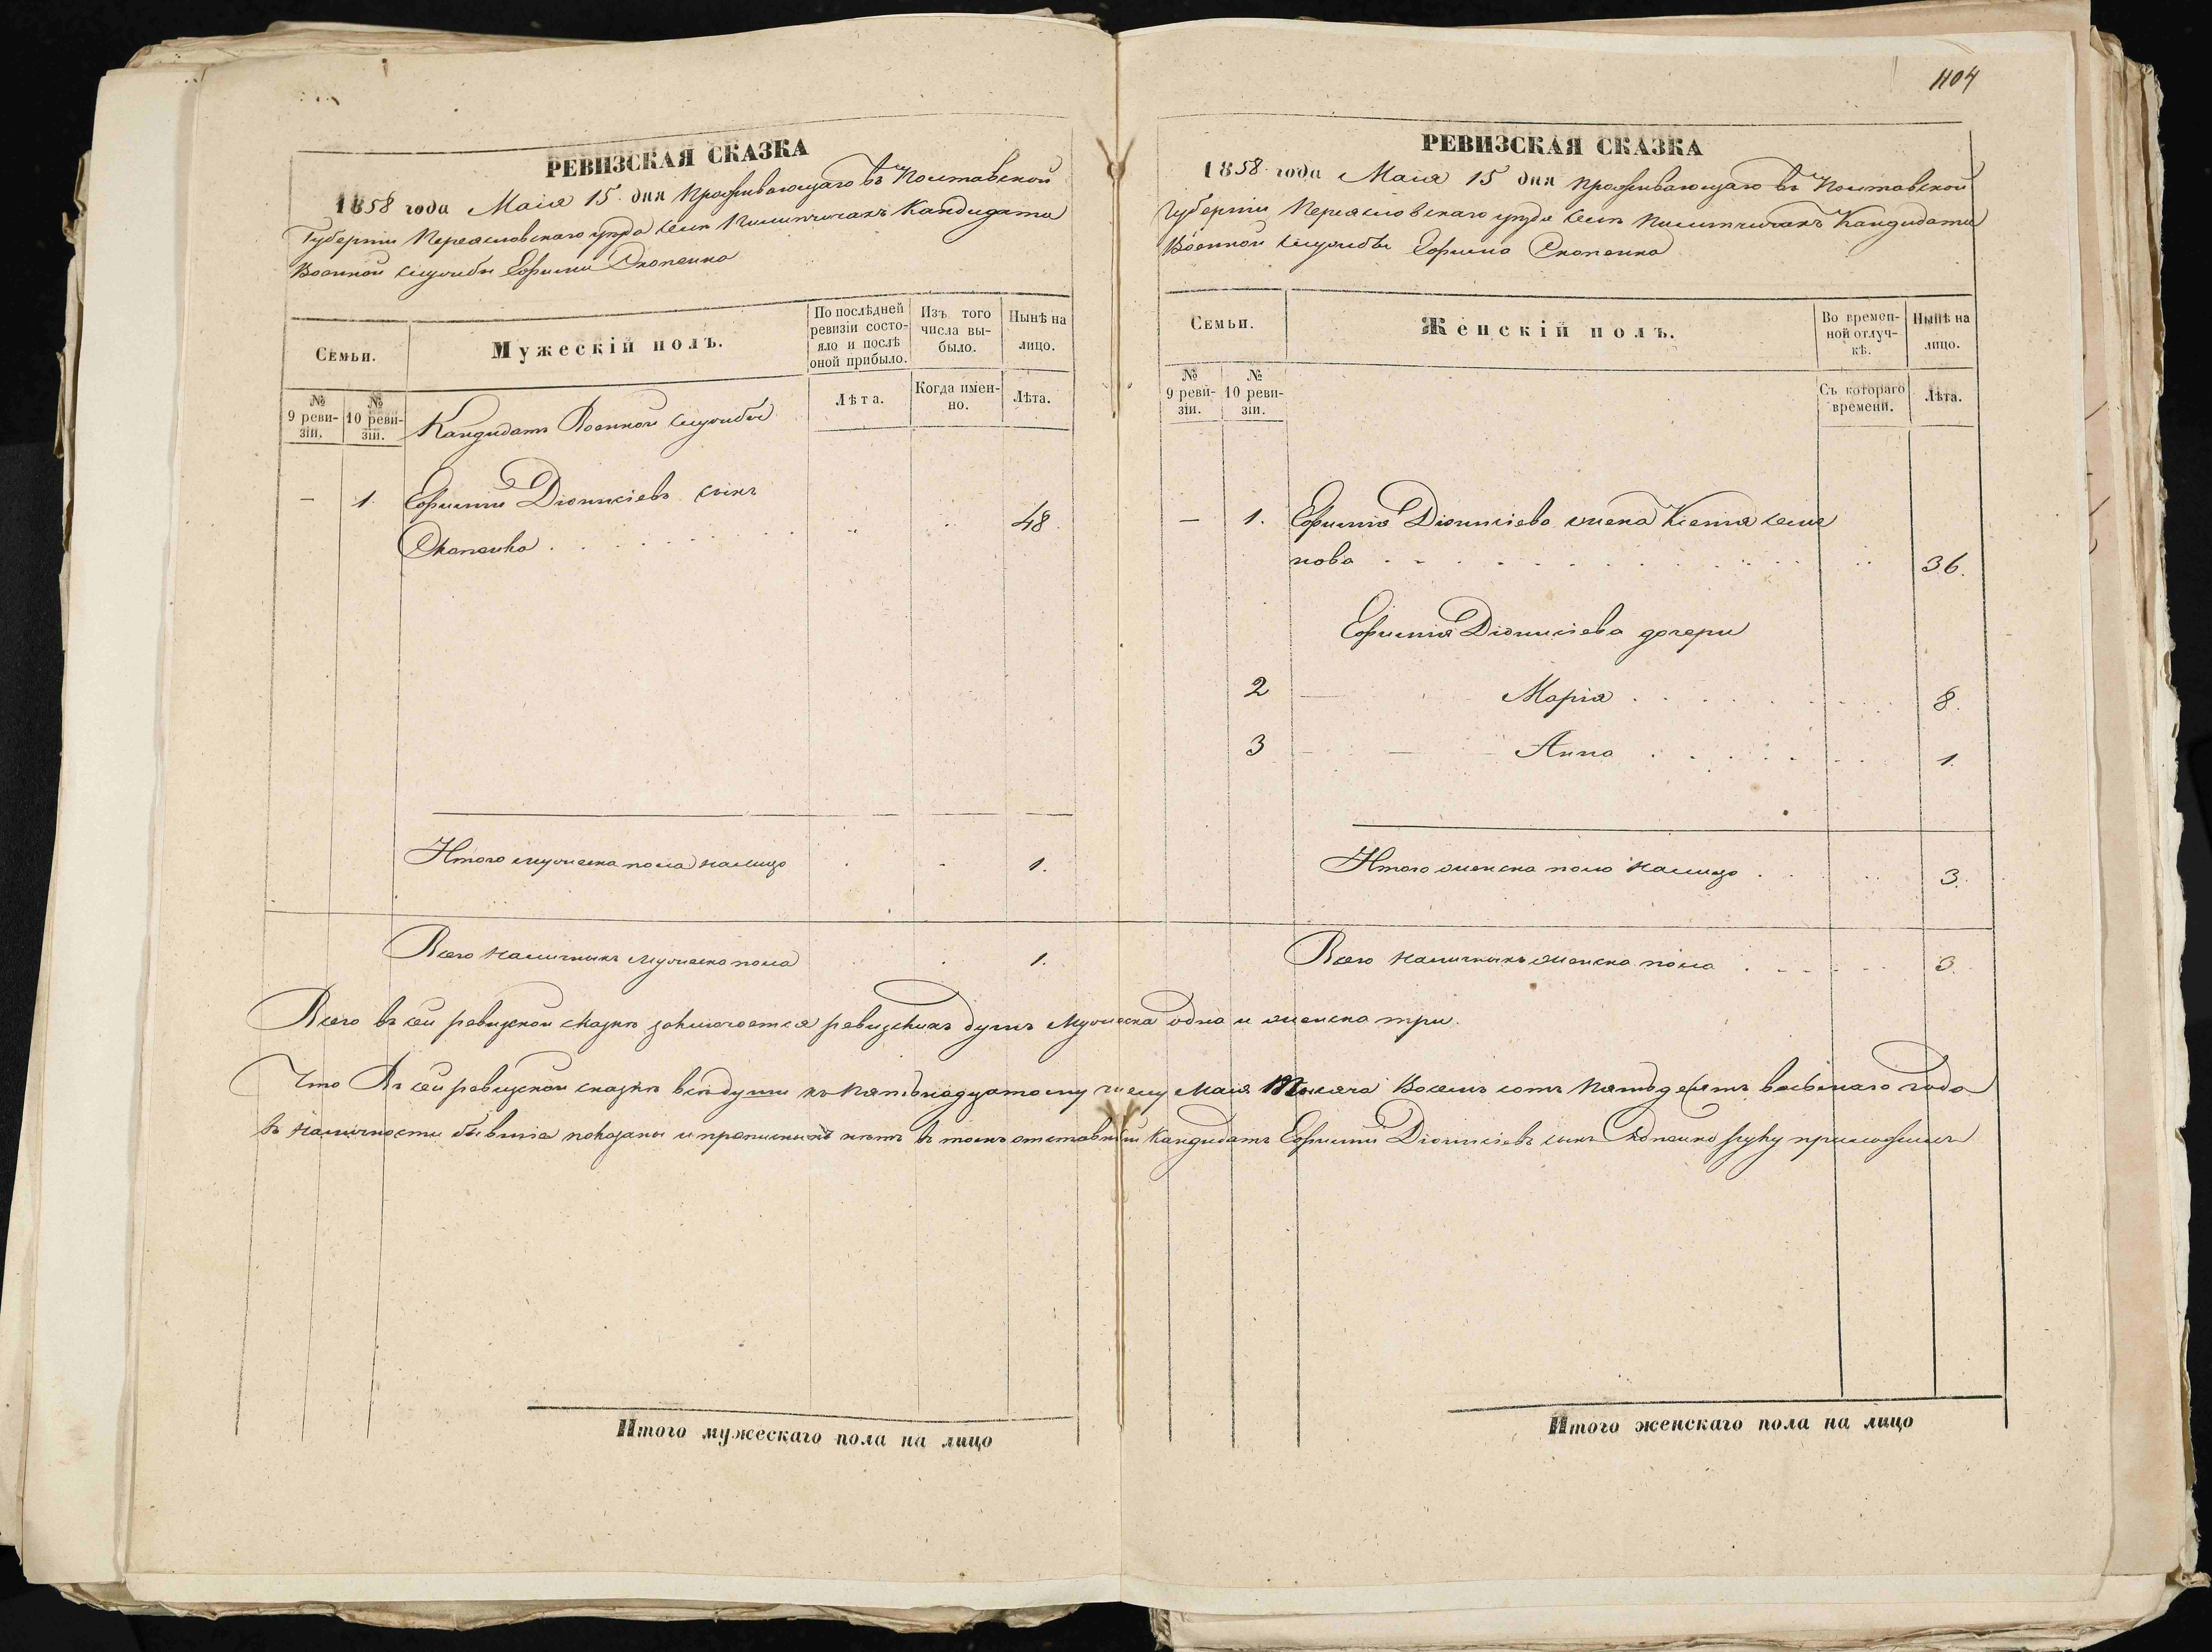 1104
РЕВИЗСКАЯ СКАЗКА
1858 года Маія 15 дня проживающаго въ Полтавской
Губерніи Переяславскаго уезда селѣ Кандидата
Военной службы Ефимія Скопенка
Семьи.
Мужескій полъ.
По послѣдней ревизіи состояло и послѣ оной прибыло.
Изъ того числа выбыло.
Нынѣ на лицо.
№ 9 ревизіи.
№ 10 ревизіи.
Лѣта.
Когда именно.
Лѣта.
Кандидатъ Военной службы
— 1. Ефимій Діонисіевъ сынъ
Скопенко . . . . . . . . 48.
Итого мужеска пола налицо . - 1.
Всего наличныхъ мужеска пола . 1.
РЕВИЗСКАЯ СКАЗКА
1858 года Маія 15 дня проживающаго въ Полтавской
Губерніи Переясловскаго уезда селѣ Кандидата
Военной службы Ефима Скопенка
Семьи.
Женскій полъ.
Во временной отлучкѣ.
Нынѣ на лицо.
№ 9 ревизіи.
№ 10 ревизіи.
Съ котораго времени.
Лѣта.
— 1. Ефимія Діонисіева жена Ксенія Семе
нова . . . . . . . . 36.
Ефимія Діонисіева дочери
2 Марія . . . . . . 8.
3 Анна . . . . . . 1.
Итого женска пола налицо . . 3.
Всего наличныхъ женска пола . - - - 3.
Всего въ сей ревизской сказкѣ заключается ревизскихъ душъ мужеска одна и женска три.
Что въ сей ревизской сказкѣ всѣ души къ пятьнадцатому числу Маія Тысяча Восемь сотъ пятьдесятъ восьмаго года
въ наличности бывшіе показаны и прописныхъ нѣтъ въ томъ отставный Кандидатъ Ефимій Діонисіевъ сынъ Скопенко руку приложилъ
Итого мужескаго пола на лицо
Итого женскаго пола на лицо